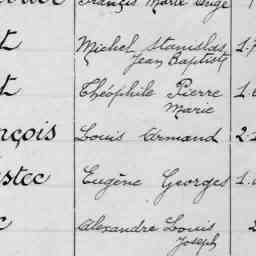 François Marie
t Michel Stanislas 1.
Jean Baptiste
t Théophile Pierre 1.
Marie
nçois Louis Armand 2.
stec Eugène Georges 1.
c Alexandre Louis 2
Joseph